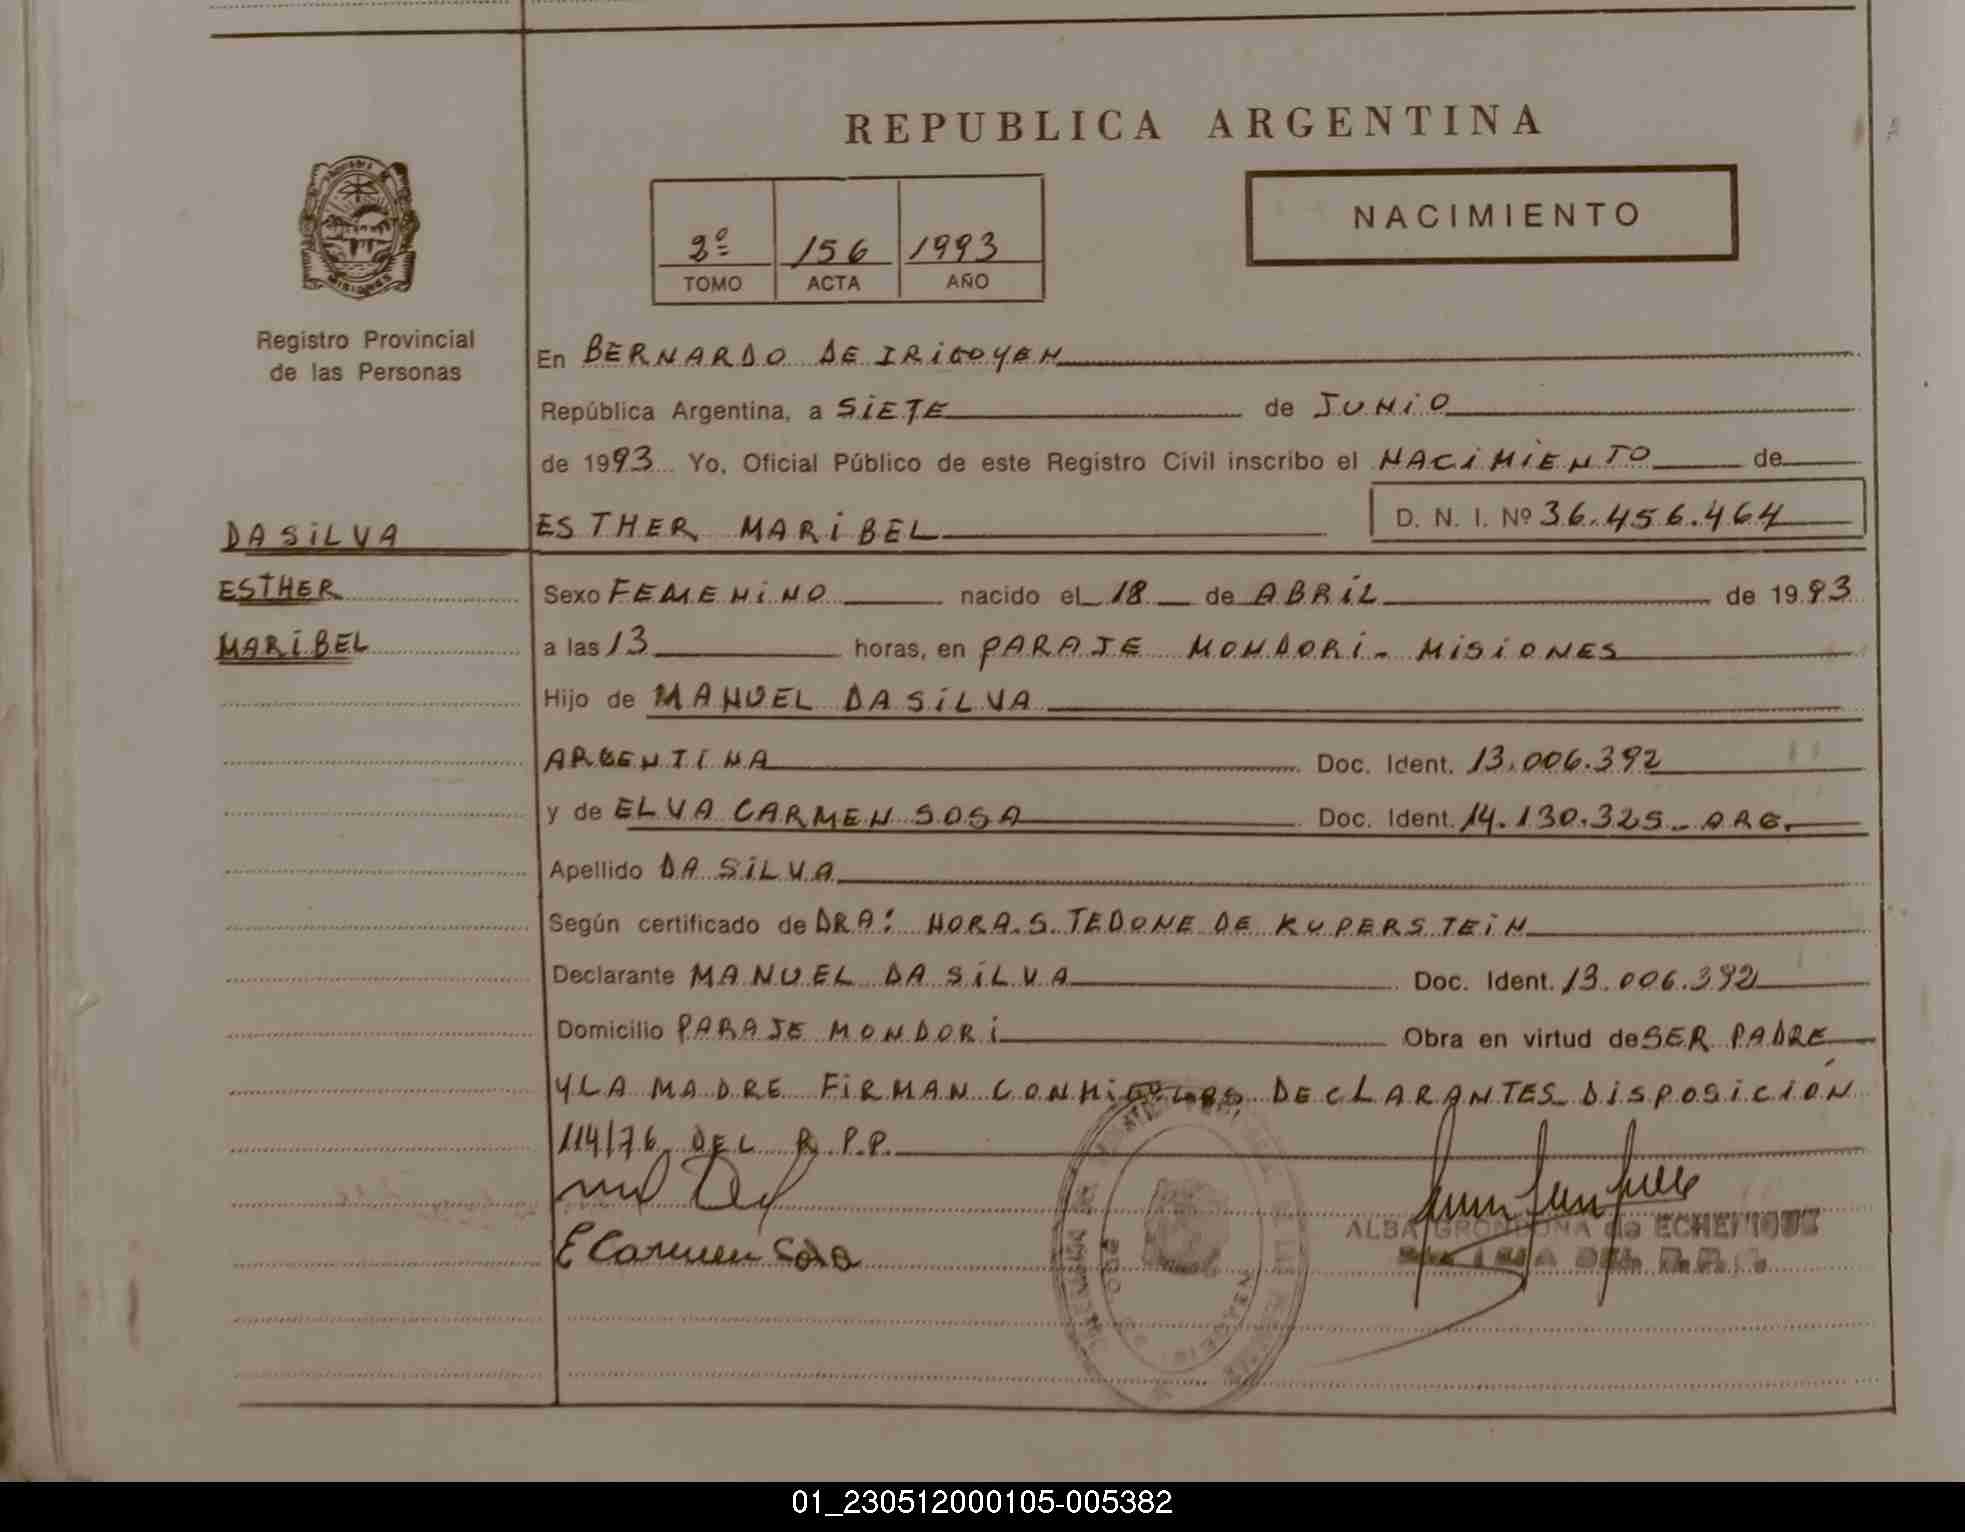 REPUBLICA ARGENTINA
NACIMIENTO
2º 156 1993
TOMO ACTA AÑO
MISIONES
Registro Provincial
de las Personas
En BERNARDO DE IRIGOYEN
República Argentina, a SIETE de JUNIO
de 1993 Yo, Oficial Público de este Registro Civil inscribo el NACIMIENTO de
DA SILVA ESTHER MARIBEL D. N. I. Nº 36.456.464
ESTHER Sexo FEMENINO nacido el 18 de ABRIL de 1993
MARIBEL a las 13 horas, en PARAJE MONDORI - MISIONES
Hijo de MANUEL DA SILVA
ARGENTINA Doc. Ident. 13.006.392
y de ELVA CARMEN SOSA Doc. Ident. 14.130.325 - ARG.
Apellido DA SILVA
Según certificado de DRA: NORA. S. TEDONE DE KUPERSTEIN
Declarante MANUEL DA SILVA Doc. Ident. 13.006.392
Domicilio PARAJE MONDORI Obra en virtud de SER PADRE
Y LA MADRE FIRMAN CONMIGO LOS DECLARANTES DISPOSICIÓN
114/76 DEL R.P.P.
E Carmen Sosa
ALBA GRONDONA de ECHENIQUE
01_230512000105-005382